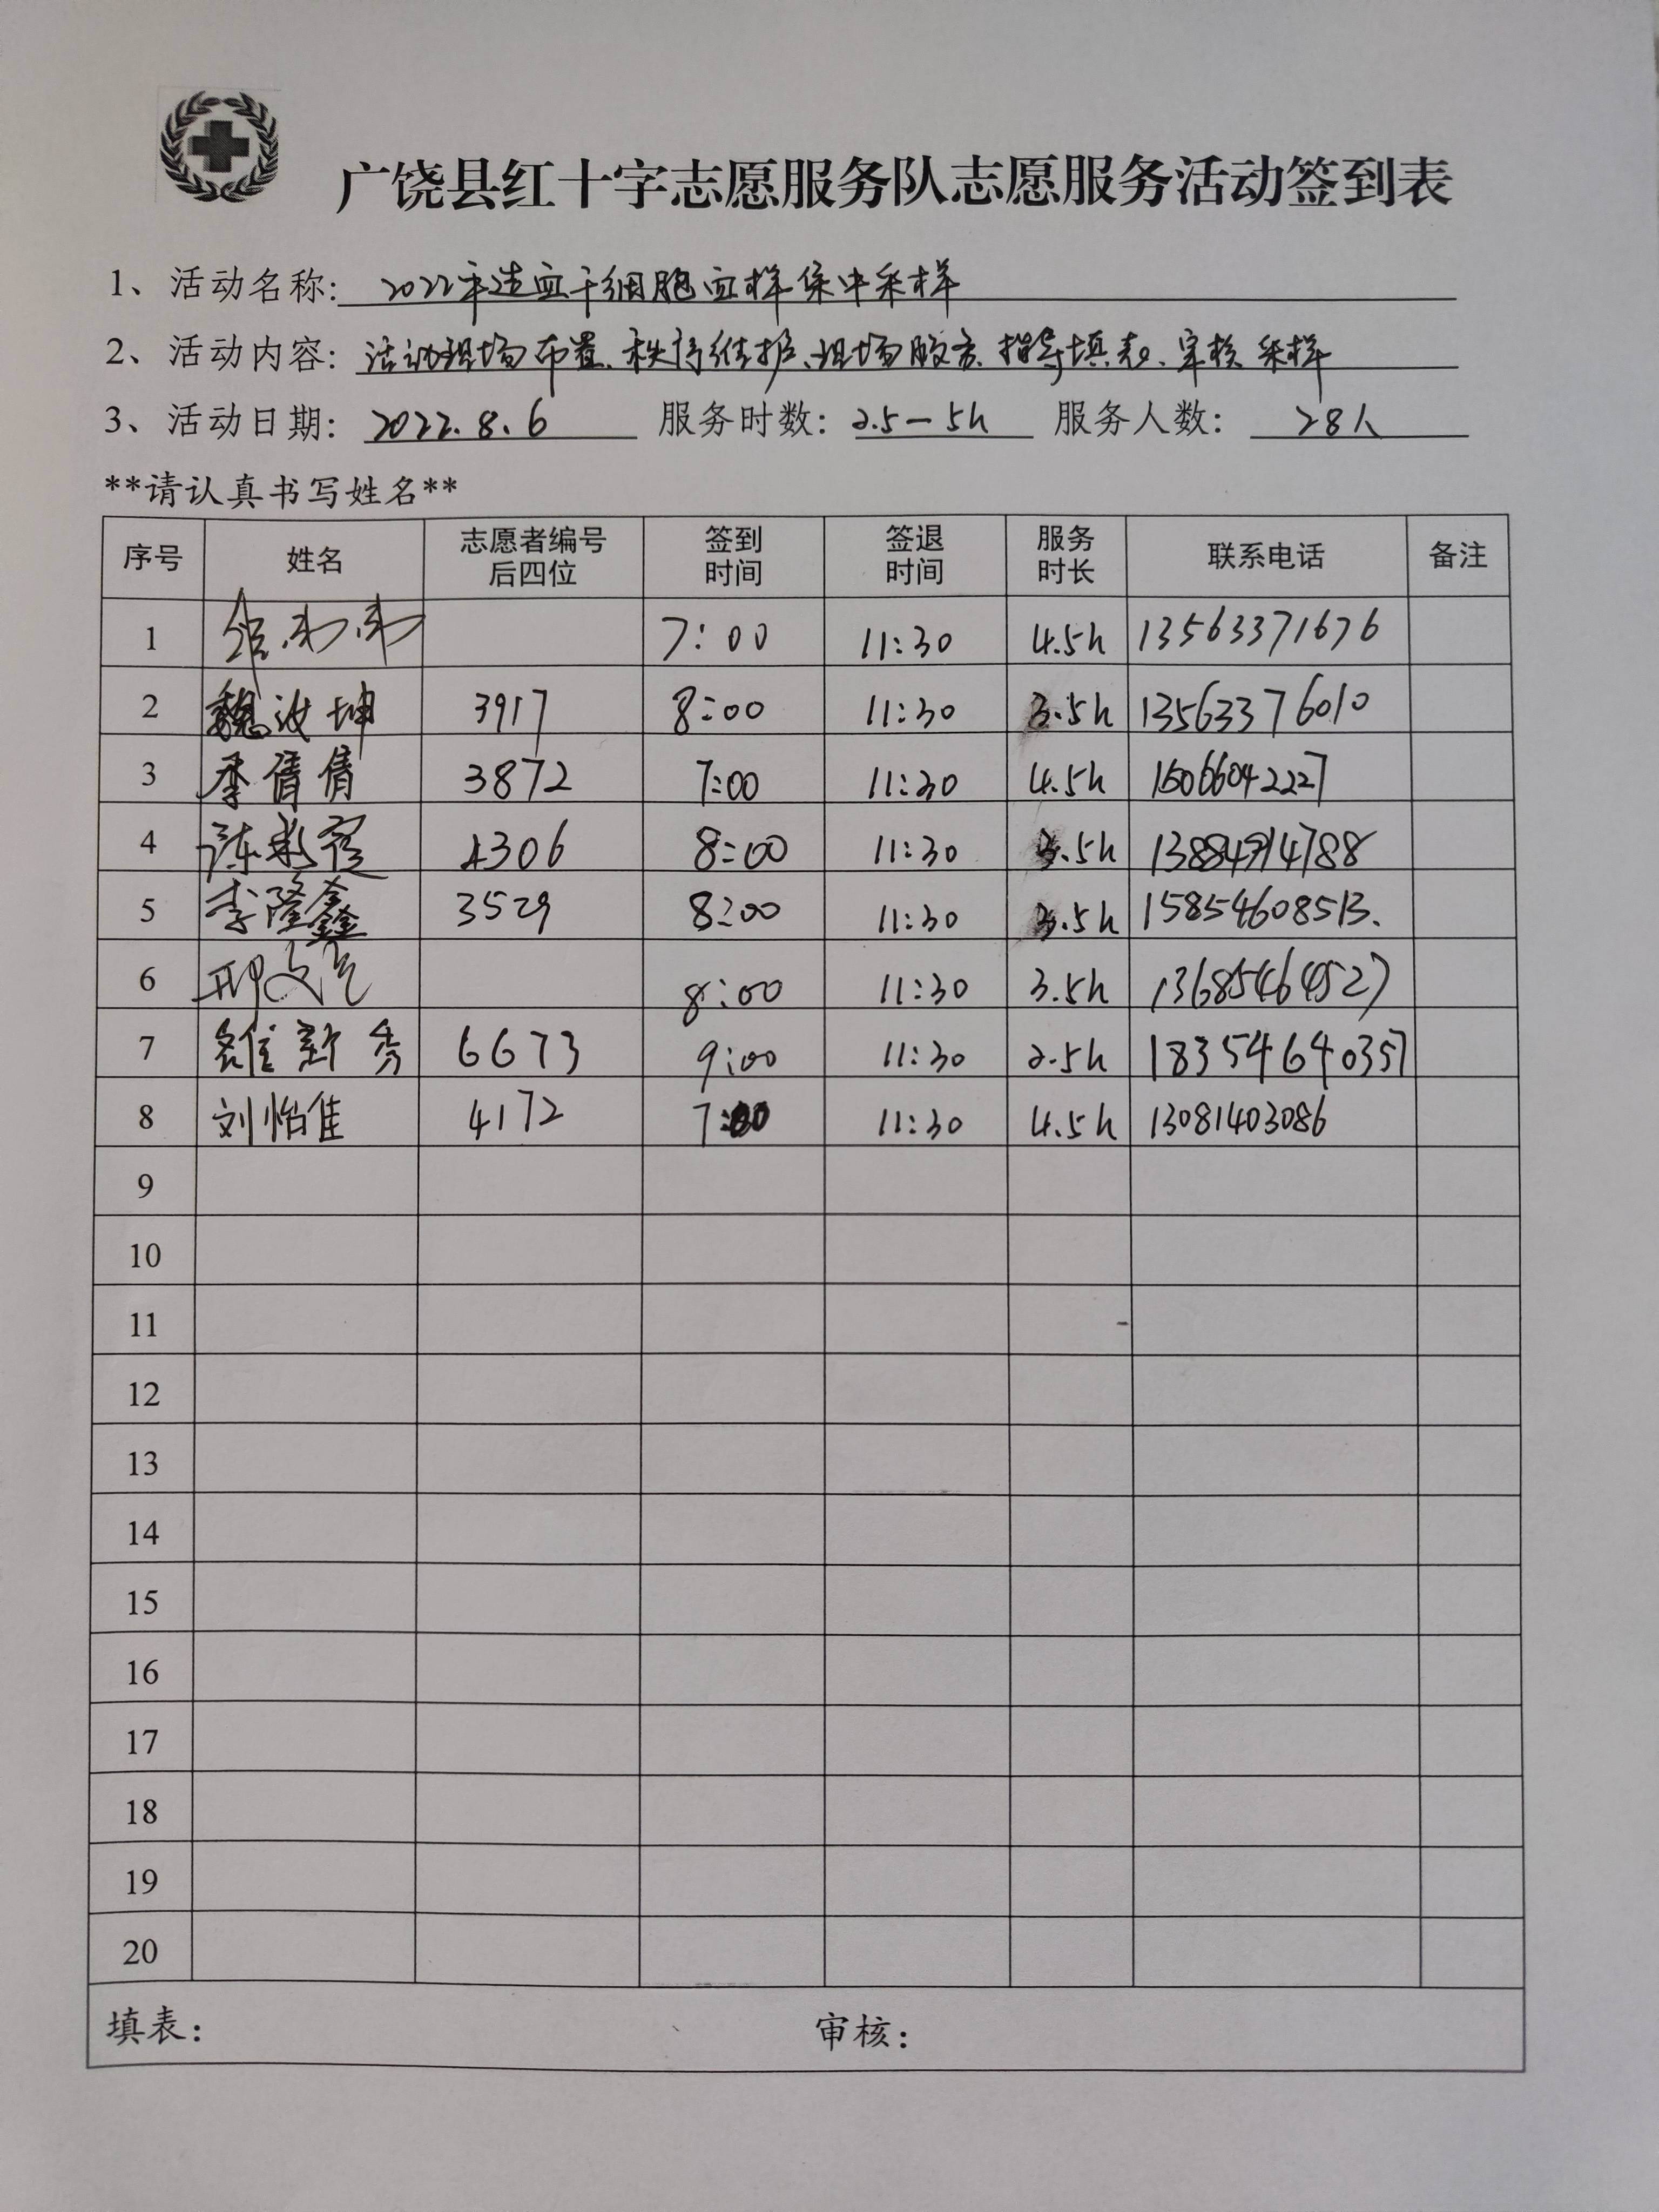 广饶县红十字志愿服务队志愿服务活动签到表
1、活动名称: 2022年造血干细胞血样集中采样
2、活动内容: 活动现场布置、秩序维护、现场服务、指导填表、审核、采样
3、活动日期: 2022.8.6 服务时数: 2.5-5h 服务人数: 28人
**请认真书写姓名**
序号 姓名 志愿者编号后四位 签到时间 签退时间 服务时长 联系电话 备注
1 7:00 11:30 4.5h 13563371676
2 魏汝坤 3917 8:00 11:30 3.5h 13563376010
3 李倩倩 3872 7:00 11:30 4.5h 15066042227
4 8:00 11:30 3.5h
5 李隆鑫 3529 8:00 11:30 3.5h 15854608513.
6 8:00 11:30 3.5h 13685464527
7 新秀 6673 9:00 11:30 2.5h 18354640357
8 刘怡佳 4172 7:00 11:30 4.5h 13081403086
9
10
11
12
13
14
15
16
17
18
19
20
填表: 审核: